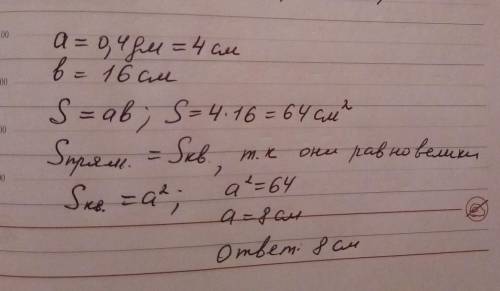 a = 0,4 дм = 4 см
в = 16 см
S = ab; S = 4·16 = 64 см²
Sпрям. = Sкв., т.к они равновелики
Sкв. = a²; a² = 64
a = 8 см
Ответ: 8 см